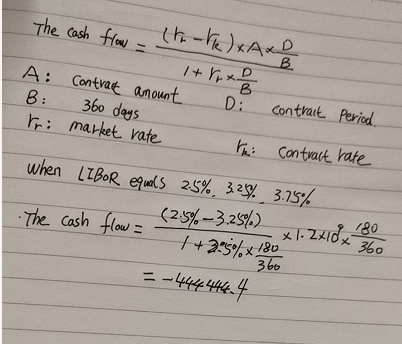 The cash flow = (r_r - r_k) × A × D/B / 1 + r_r × D/B
A: contract amount
B: 360 days D: contract period.
r_r: market rate r_k: contract rate
when LIBOR equals 2.5%, 3.25%, 3.75%
·The cash flow = (2.5% - 3.25%) / 1 + 2.5% × 180/360 × 1.2×10⁸ × 180/360
= -444444.4